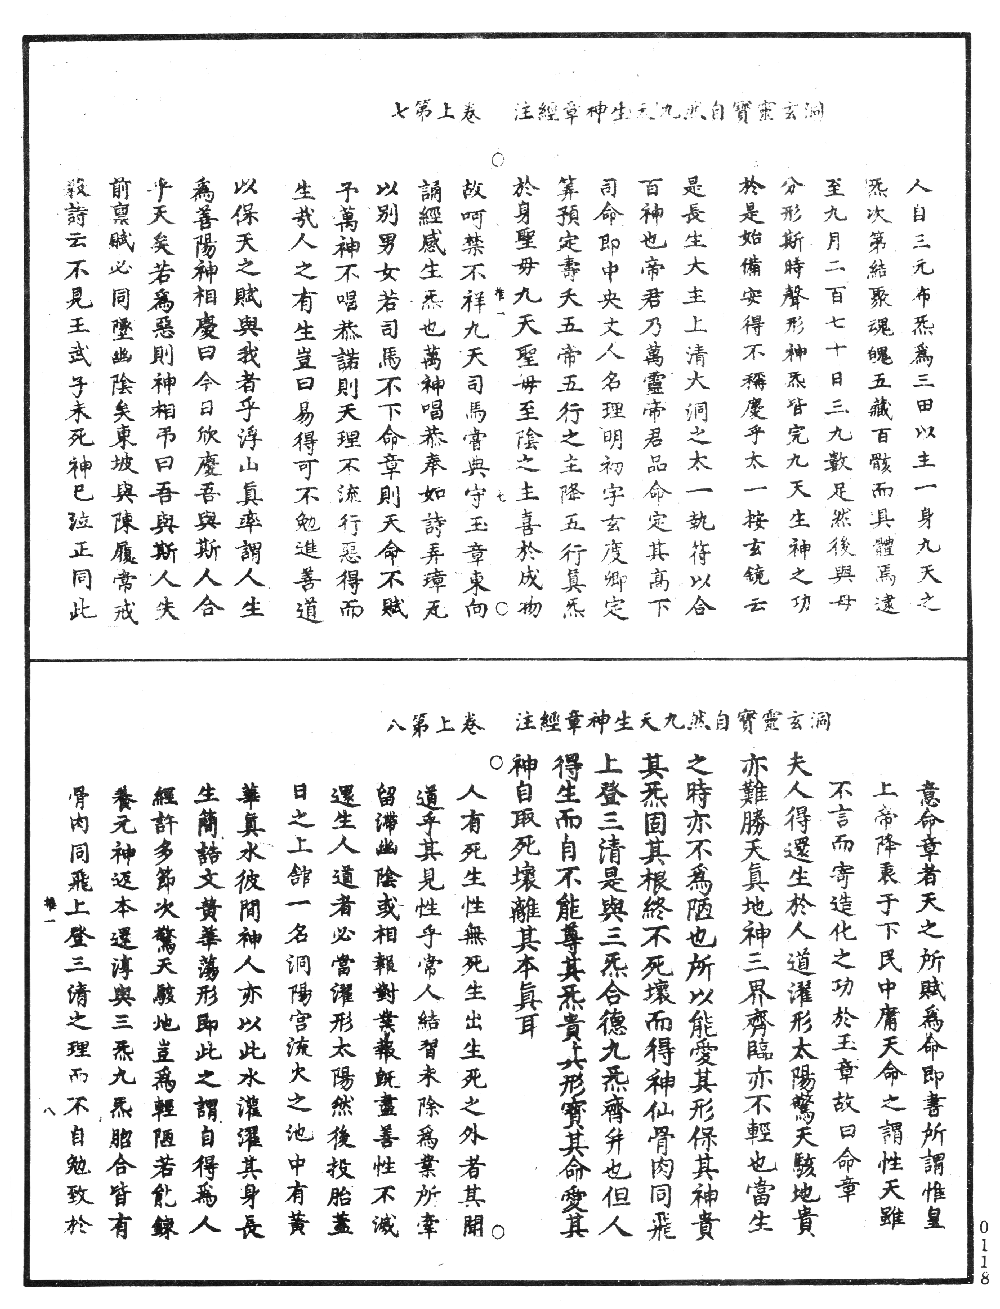 洞玄靈寶自然九天生神章經注　卷上第七
人自三元布炁爲三田以主一身九天之
炁次第結聚魂魄五藏百骸而具體焉逮
至九月二百七十日三九數足然後與母
分形斯時聲形神炁皆完九天生神之功
於是始備安得不稱慶乎太一按玄鏡云
是長生大主上清大洞之太一執符以合
百神也帝君乃萬靈帝君品命定其高下
司命即中央丈人名理明初字玄度卿定
筭預定壽夭五帝五行之主降五行真炁
於身聖母九天聖母至陰之主喜於成物
故呵禁不祥九天司馬嘗典守玉章東向
誦經感生炁也萬神唱恭奉如詩弄璋瓦
以別男女若司馬不下命章則天命不賦
予萬神不唱恭諾則天理不流行惡得而
生哉人之有生豈曰易得可不勉進善道
以保天之賦與我者乎浮山真率謂人生
爲善陽神相慶曰今日欣慶吾與斯人合
乎天矣若爲惡則神相弔曰吾與斯人失
前禀賦必同墜幽陰矣東坡與陳履常戒
殺詩云不見王武子未死神已泣正同此
卷一　七
洞玄靈寶自然九天生神章經注　卷上第八
意命章者天之所賦爲命即書所謂惟皇
上帝降衷于下民中庸天命之謂性天雖
不言而寄造化之功於玉章故曰命章
夫人得還生於人道濯形太陽驚天駭地貴
亦難勝天真地神三界齊臨亦不輕也當生
之時亦不爲陋也所以能愛其形保其神貴
其炁固其根終不死壞而得神仙骨肉同飛
上登三清是與三炁合德九炁齊并也但人
得生而自不能尊其炁貴其形寶其命愛其
神自取死壞離其本真耳
人有死生性無死生出生死之外者其聞
道乎其見性乎常人結習未除爲業所牽
留滯幽陰或相報對業報既盡善性不滅
還生人道者必當濯形太陽然後投胎蓋
日之上館一名洞陽宮流火之池中有黃
華真水彼間神人亦以此水灌濯其身長
生簡誥文黃華蕩形即此之謂自得爲人
經許多節次驚天駭地豈爲輕陋若能鍊
養元神返本還淳與三炁九炁脗合皆有
骨肉同飛上登三清之理而不自勉致於
卷一　八
0118